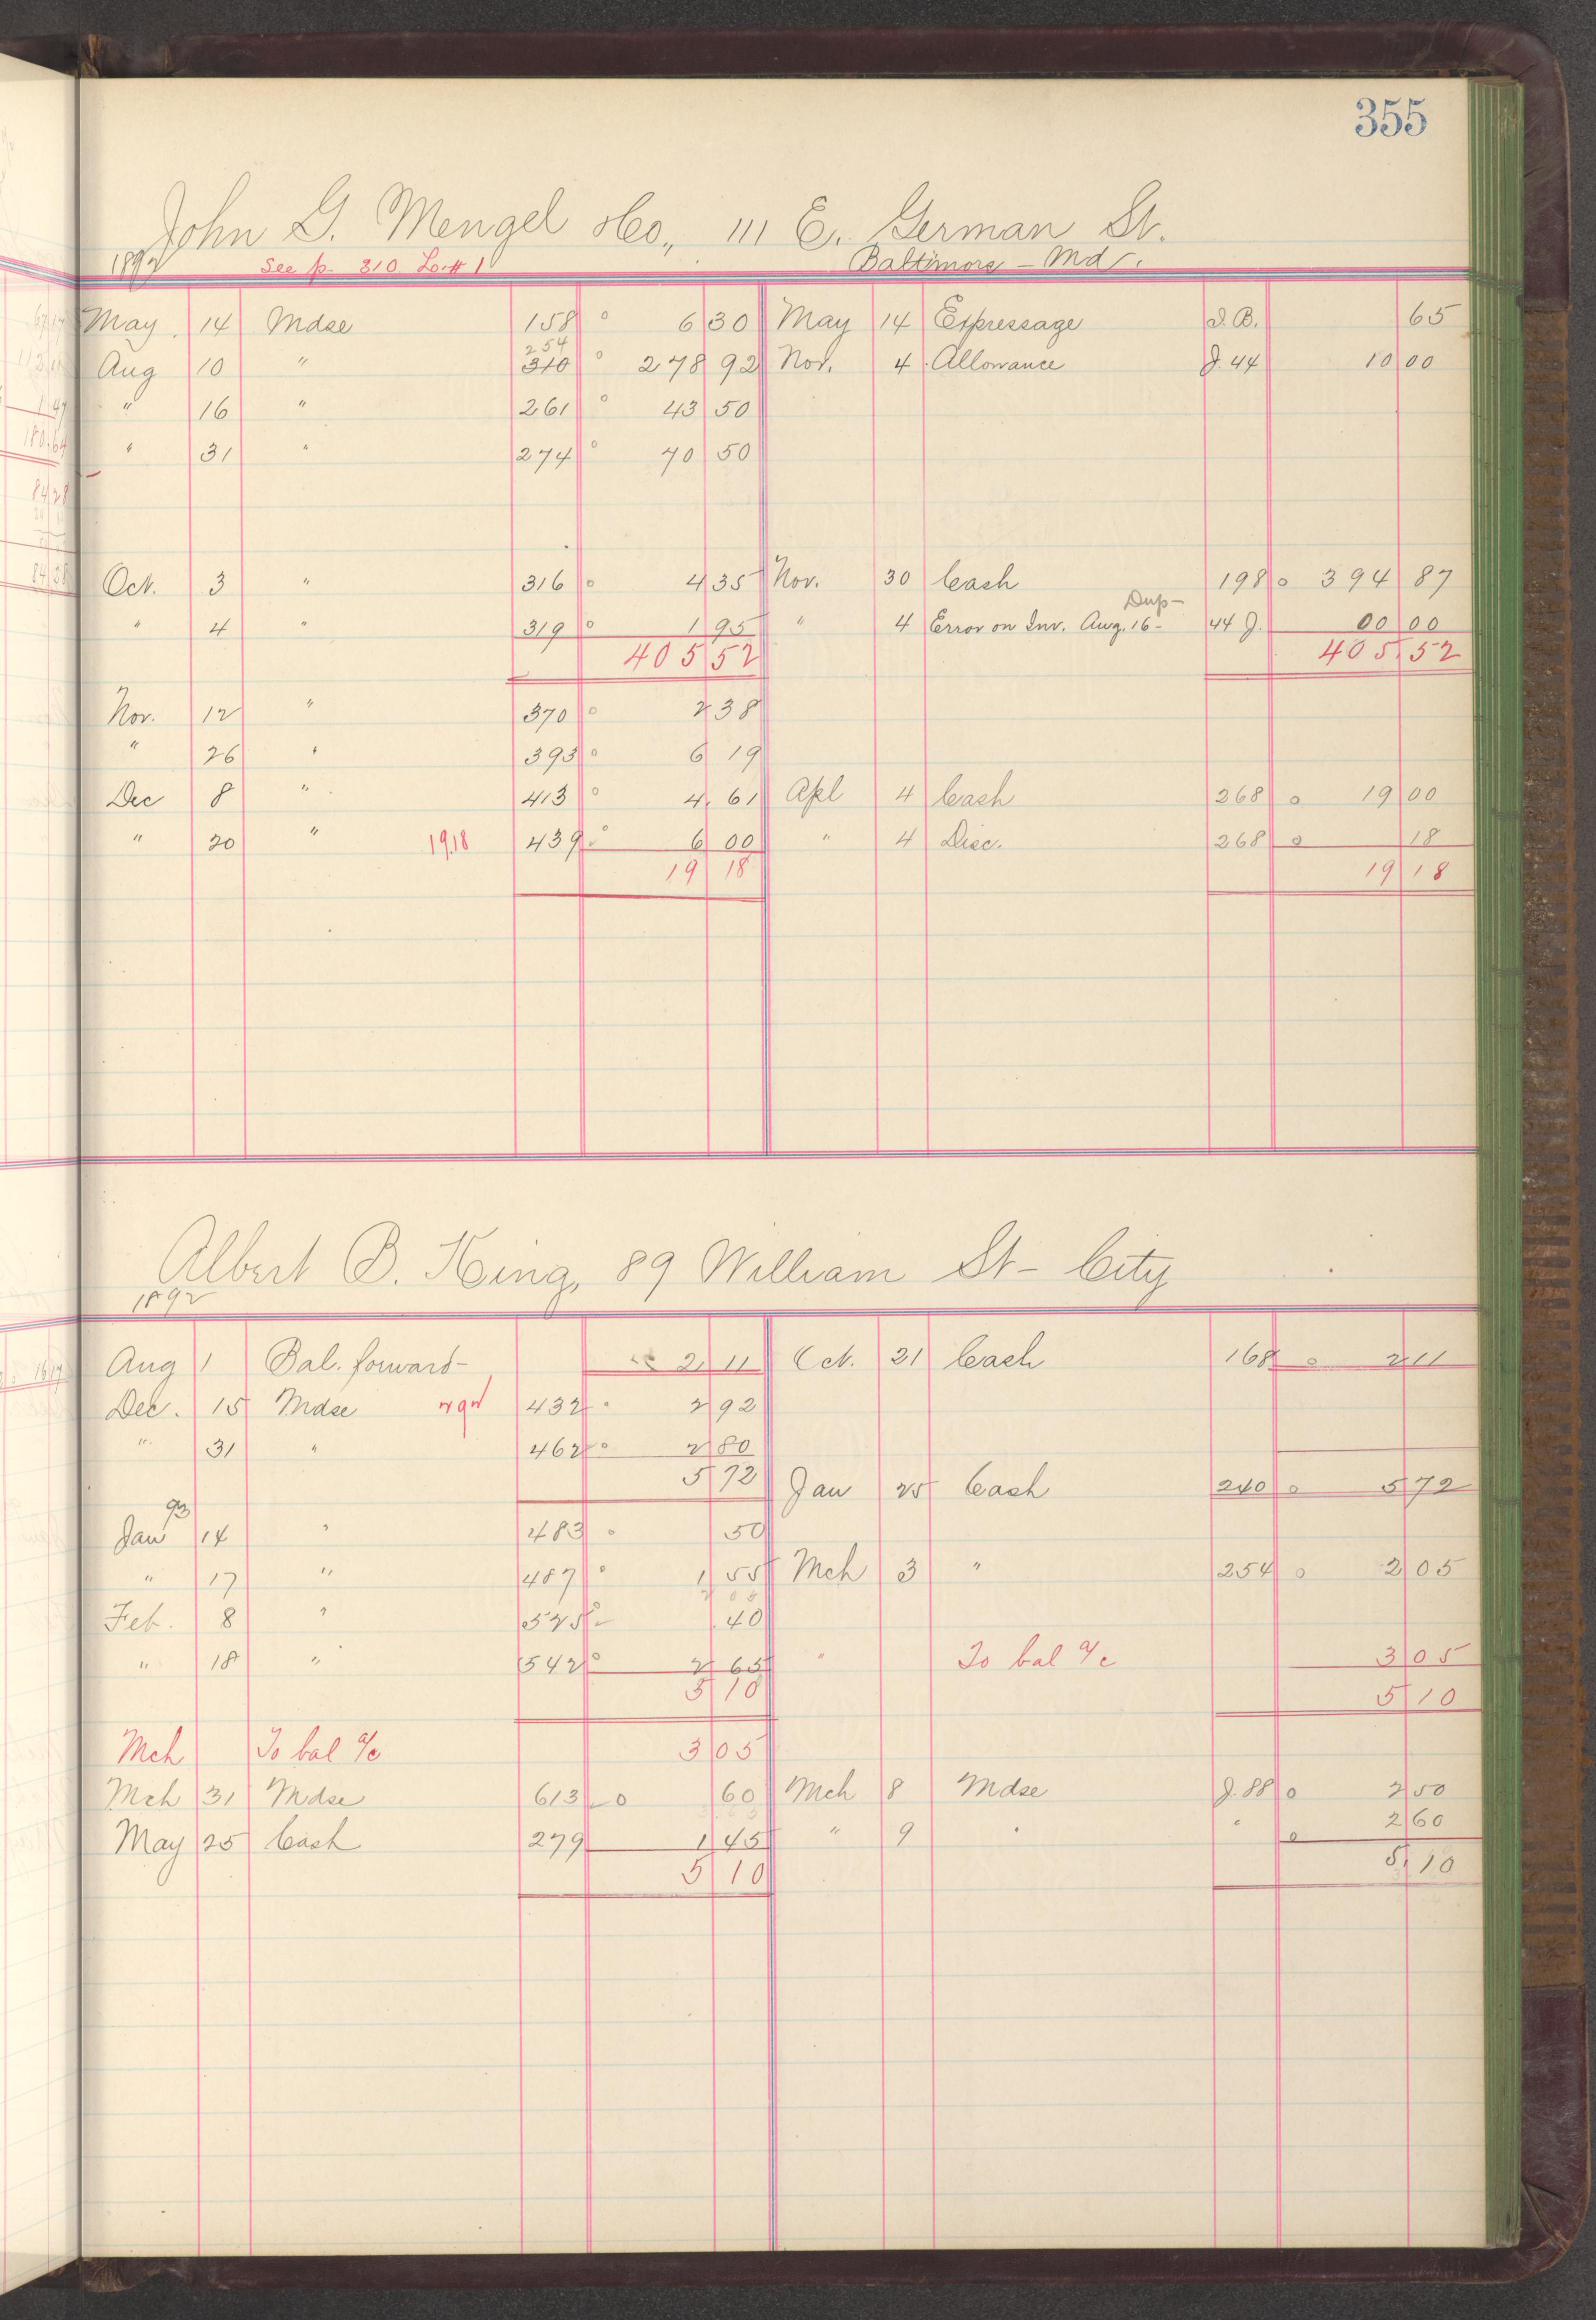 355
John G. Mengel & Co., 111 E. German St.
1892 See p. 310 L. # 1 Baltimore - Md.
May 14 Mdse 158 6 30 May 14 Expressage I.B. 65
254
Aug 10 " 310 278 92 Nov. 4 Allowance J. 44 10 00
" 16 " 261 43 50
" 31 " 274 70 50
Oct. 3 " 316 4 35 Nov. 30 Cash 198 394 87
Dup-
" 4 " 319 1 95 " 4 Error on Inv. Aug. 16- 44 J. 00 00
405 52 405 52
Nov. 12 " 370 2 38
" 26 " 393 6 19
Dec 8 " 413 4 61 Apl 4 Cash 268 19 00
" 20 " 19.18 439 6 00 " 4 Disc. 268 18
19 18 19 18
Albert B. King, 89 William St- City
1892
Aug 1 Bal. forward- 2 11 Oct. 21 Cash 168 2 11
Dec. 15 Mdse 292 432 2 92
" 31 " 462 2 80
5 72 Jan 25 Cash 240 5 72
93
Jan 14 " 483 50
" 17 " 487 1 55 Mch 3 " 254 2 05
2 05
Feb. 8 " 525 40
" 18 " 542 2 65 " To bal a/c 3 05
5 10 5 10
Mch To bal a/c 3 05
Mch 31 Mdse 613 60 Mch 8 Mdse J. 88 2 50
May 25 Cash 279 1 45 " 9 " " 2 60
5 10 5 10